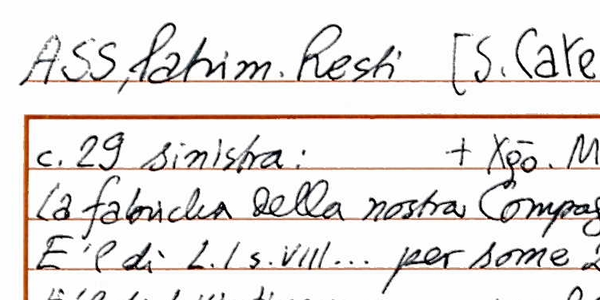 ASS, Patrim. Resti [S. Cate
c. 29 sinistra: + Xgō. M
La fabricha della nostra Compag
E 'l dì L. 1 s. VIII... per some 2